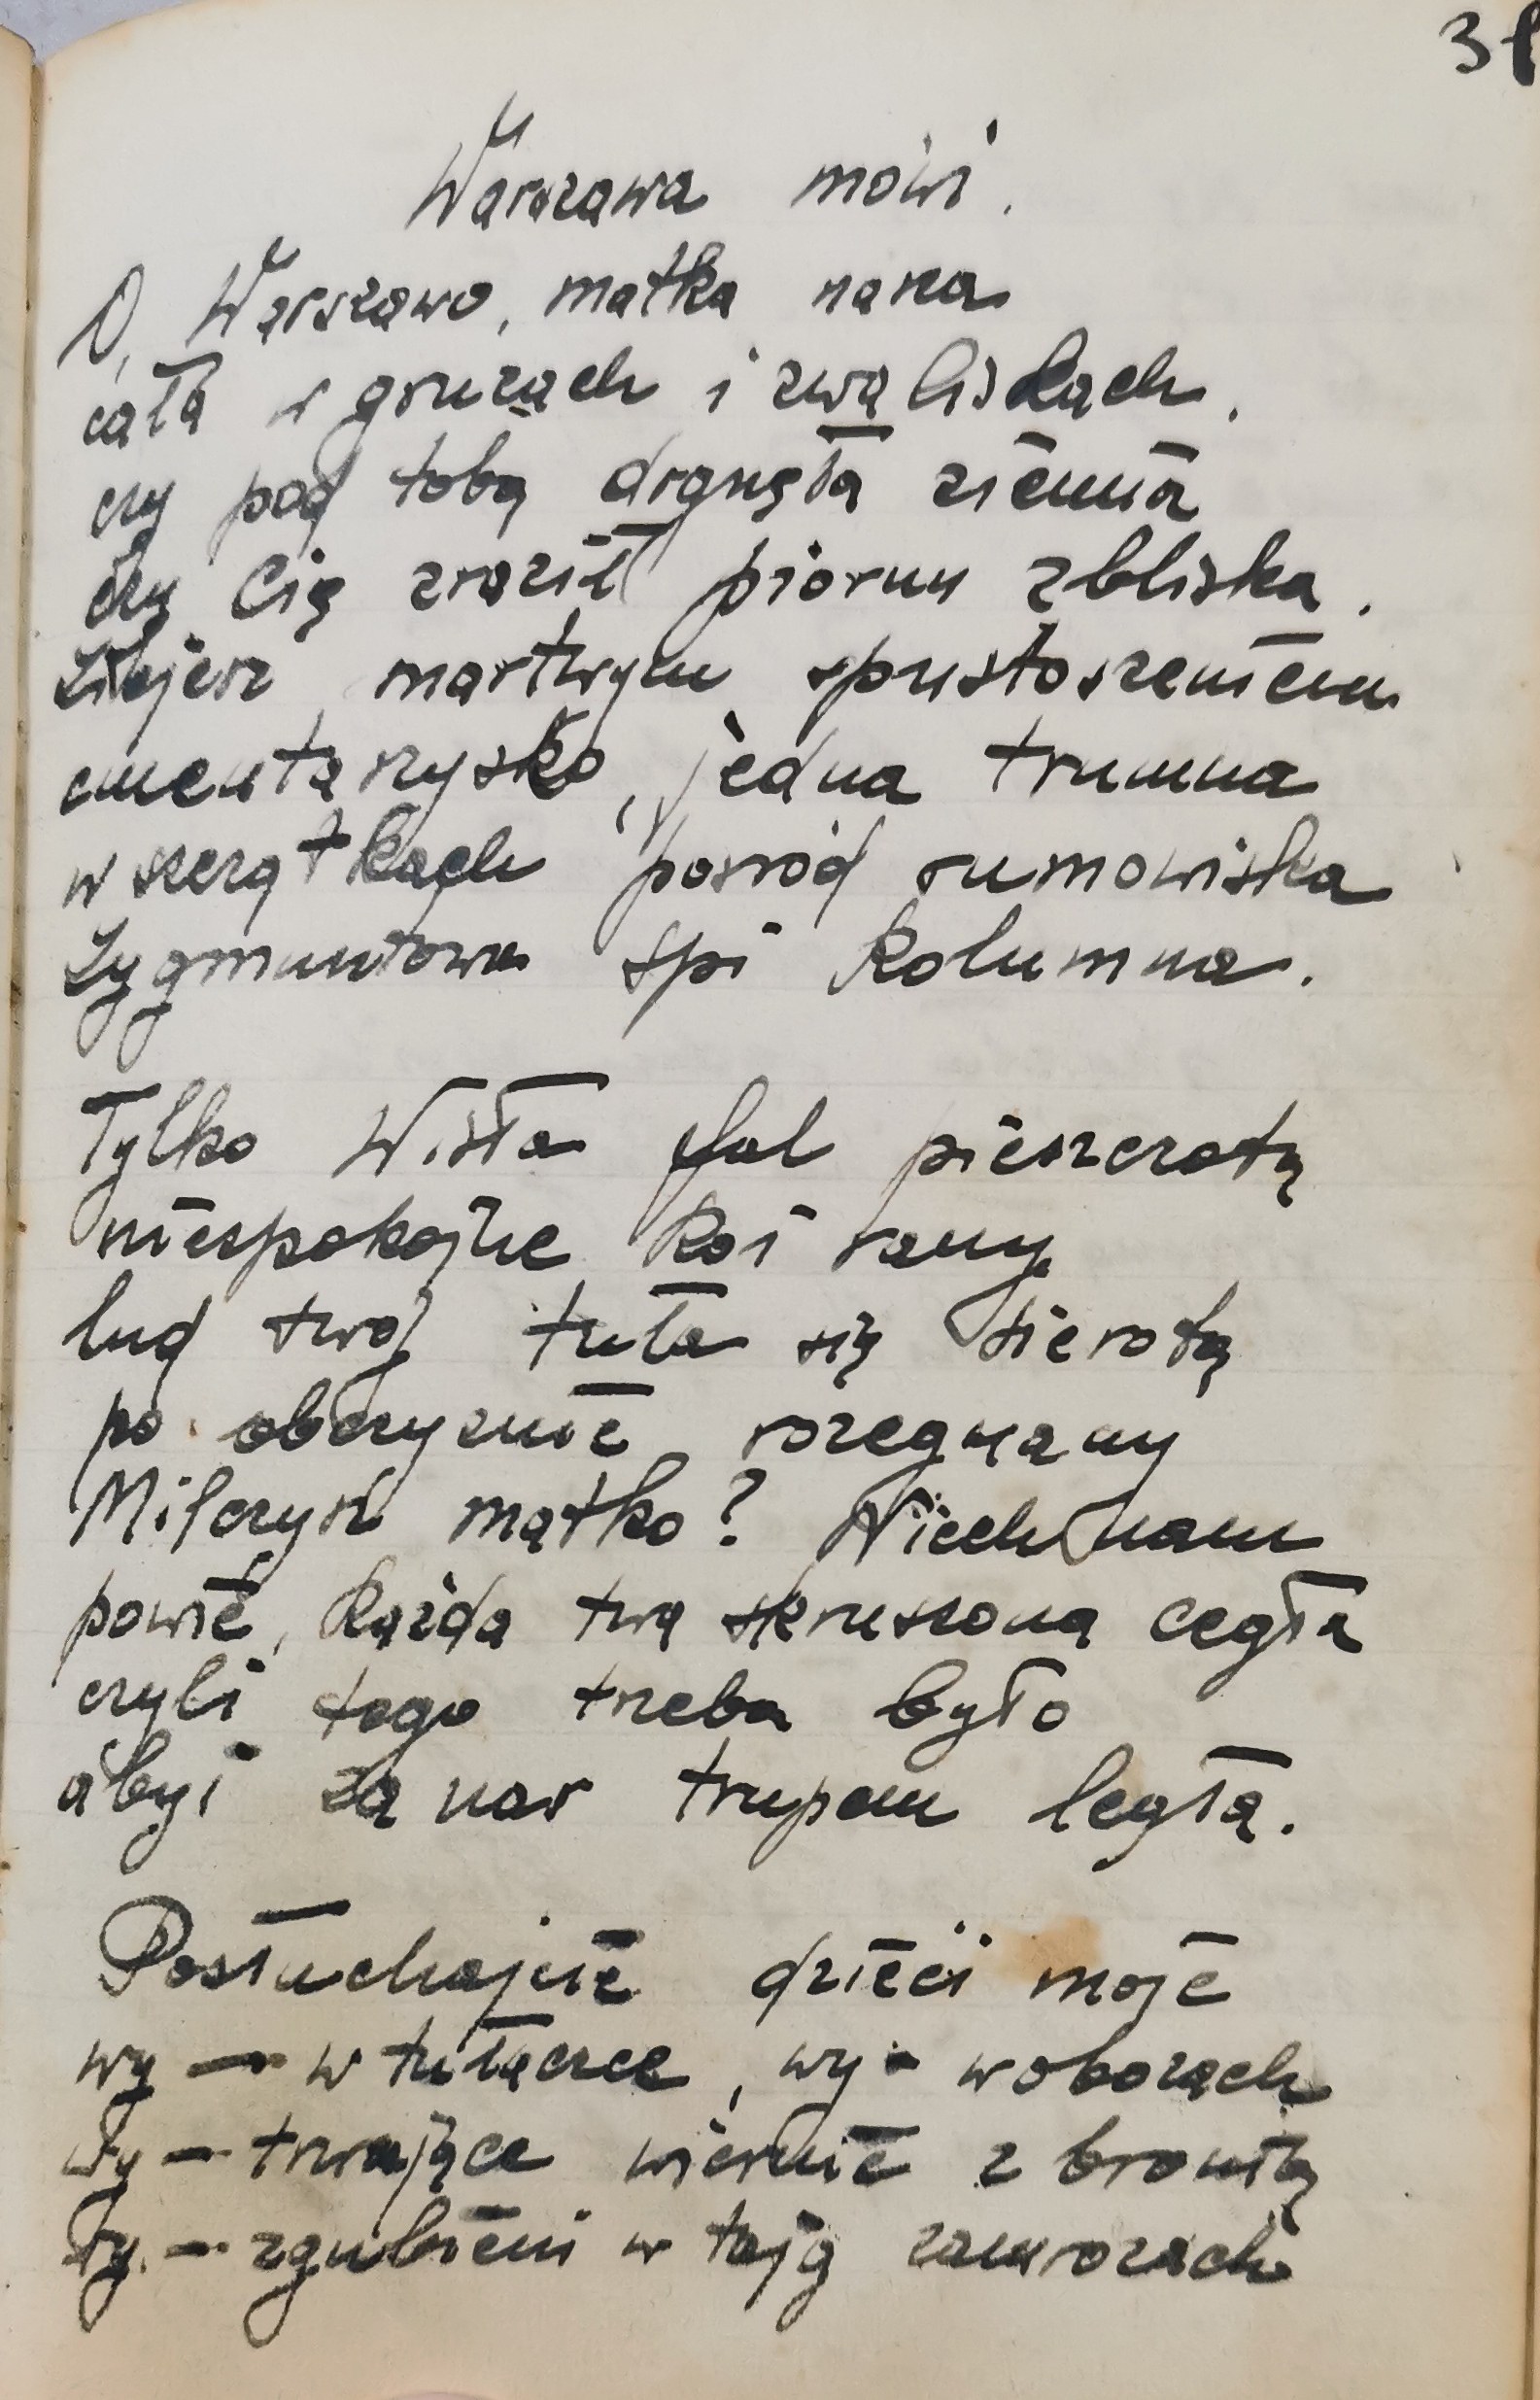 Warszawa mówi.
O, Warszawo, matka nasza
cała w gruzach i zwaliskach.
czy pod tobą drgnęła ziemia
czy Cię zraził piorun zbliska.
Ziejesz martwym spustoszeniem
cmentarzysko, jedna trumna
w szczątkach pośród rumowiska
Zygmuntowa śpi Kolumna.
Tylko Wisła fal pieszczotą
niespokojne koi rany
lud twój tuła się sierotą
po obczyźnie rozegnany
Milczysz matko? Niech nam
powie, każda twa skruszona cegła
czyli tego trzeba było
abyś za nas trupem legła.
Posłuchajcie dzieci moje
wy – w tułaczce, wy – w obozach
Wy – trwające wiernie z bronią
Wy – zgubieni w tajg zamrozach